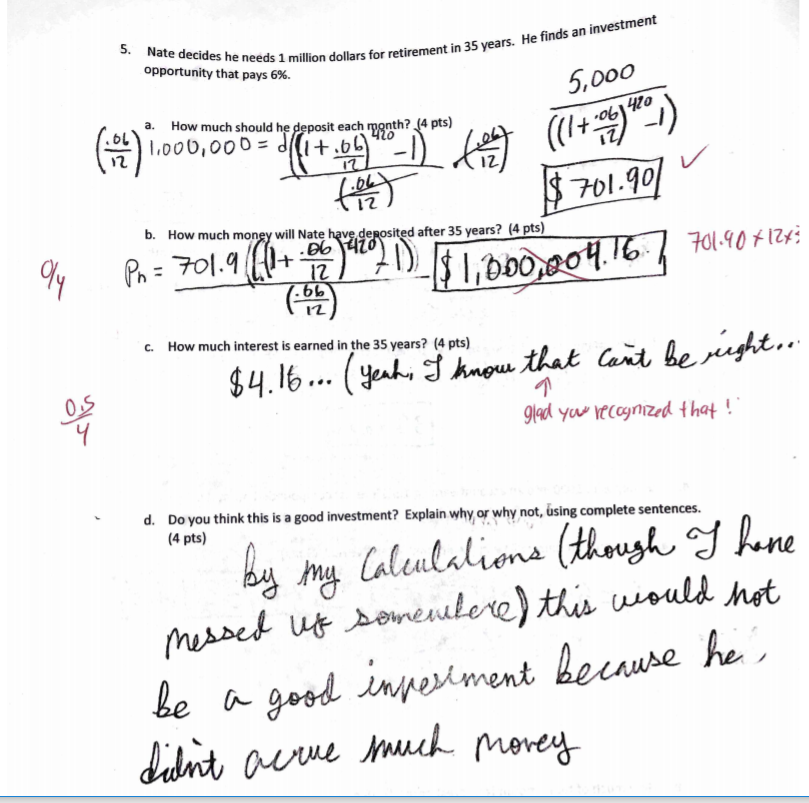 5. Nate decides he needs 1 million dollars for retirement in 35 years. He finds an investment
opportunity that pays 6%.
a. How much should he deposit each month? (4 pts)
(.06/12) 1,000,000 = d((1+.06/12)^420 -1) / (.06/12) (.06/12)
5,000 / ((1+.06/12)^420 -1)
$701.90 ✓
b. How much money will Nate have deposited after 35 years? (4 pts)
0/4
Pn = 701.9((1+.06/12)^420 -1) / (.06/12)
$1,000,004.16
701.90 × 12 ×
c. How much interest is earned in the 35 years? (4 pts)
$4.16... (Yeah, I know that can't be right...
↑
0.5/4
glad you recognized that!
d. Do you think this is a good investment? Explain why or why not, using complete sentences.
(4 pts)
by my Calculations (though I have
messed up somewhere) this would not
be a good investment because he
didn't acrue much money